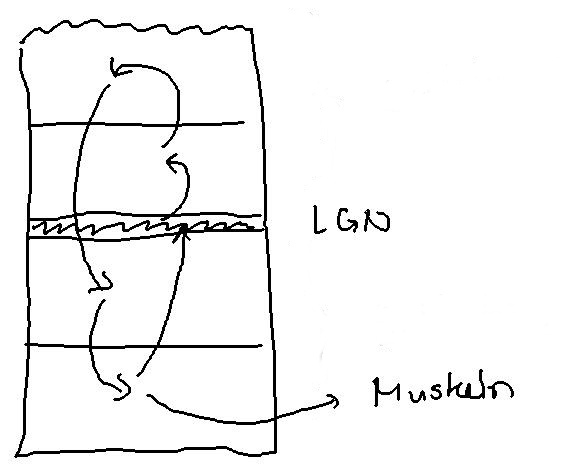 LGN
Muskeln